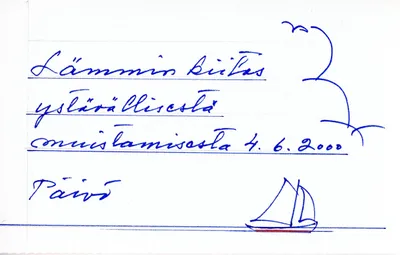 Lämmin kiitos
ystävällisestä
muistamisesta 4.6.2000
Päivö